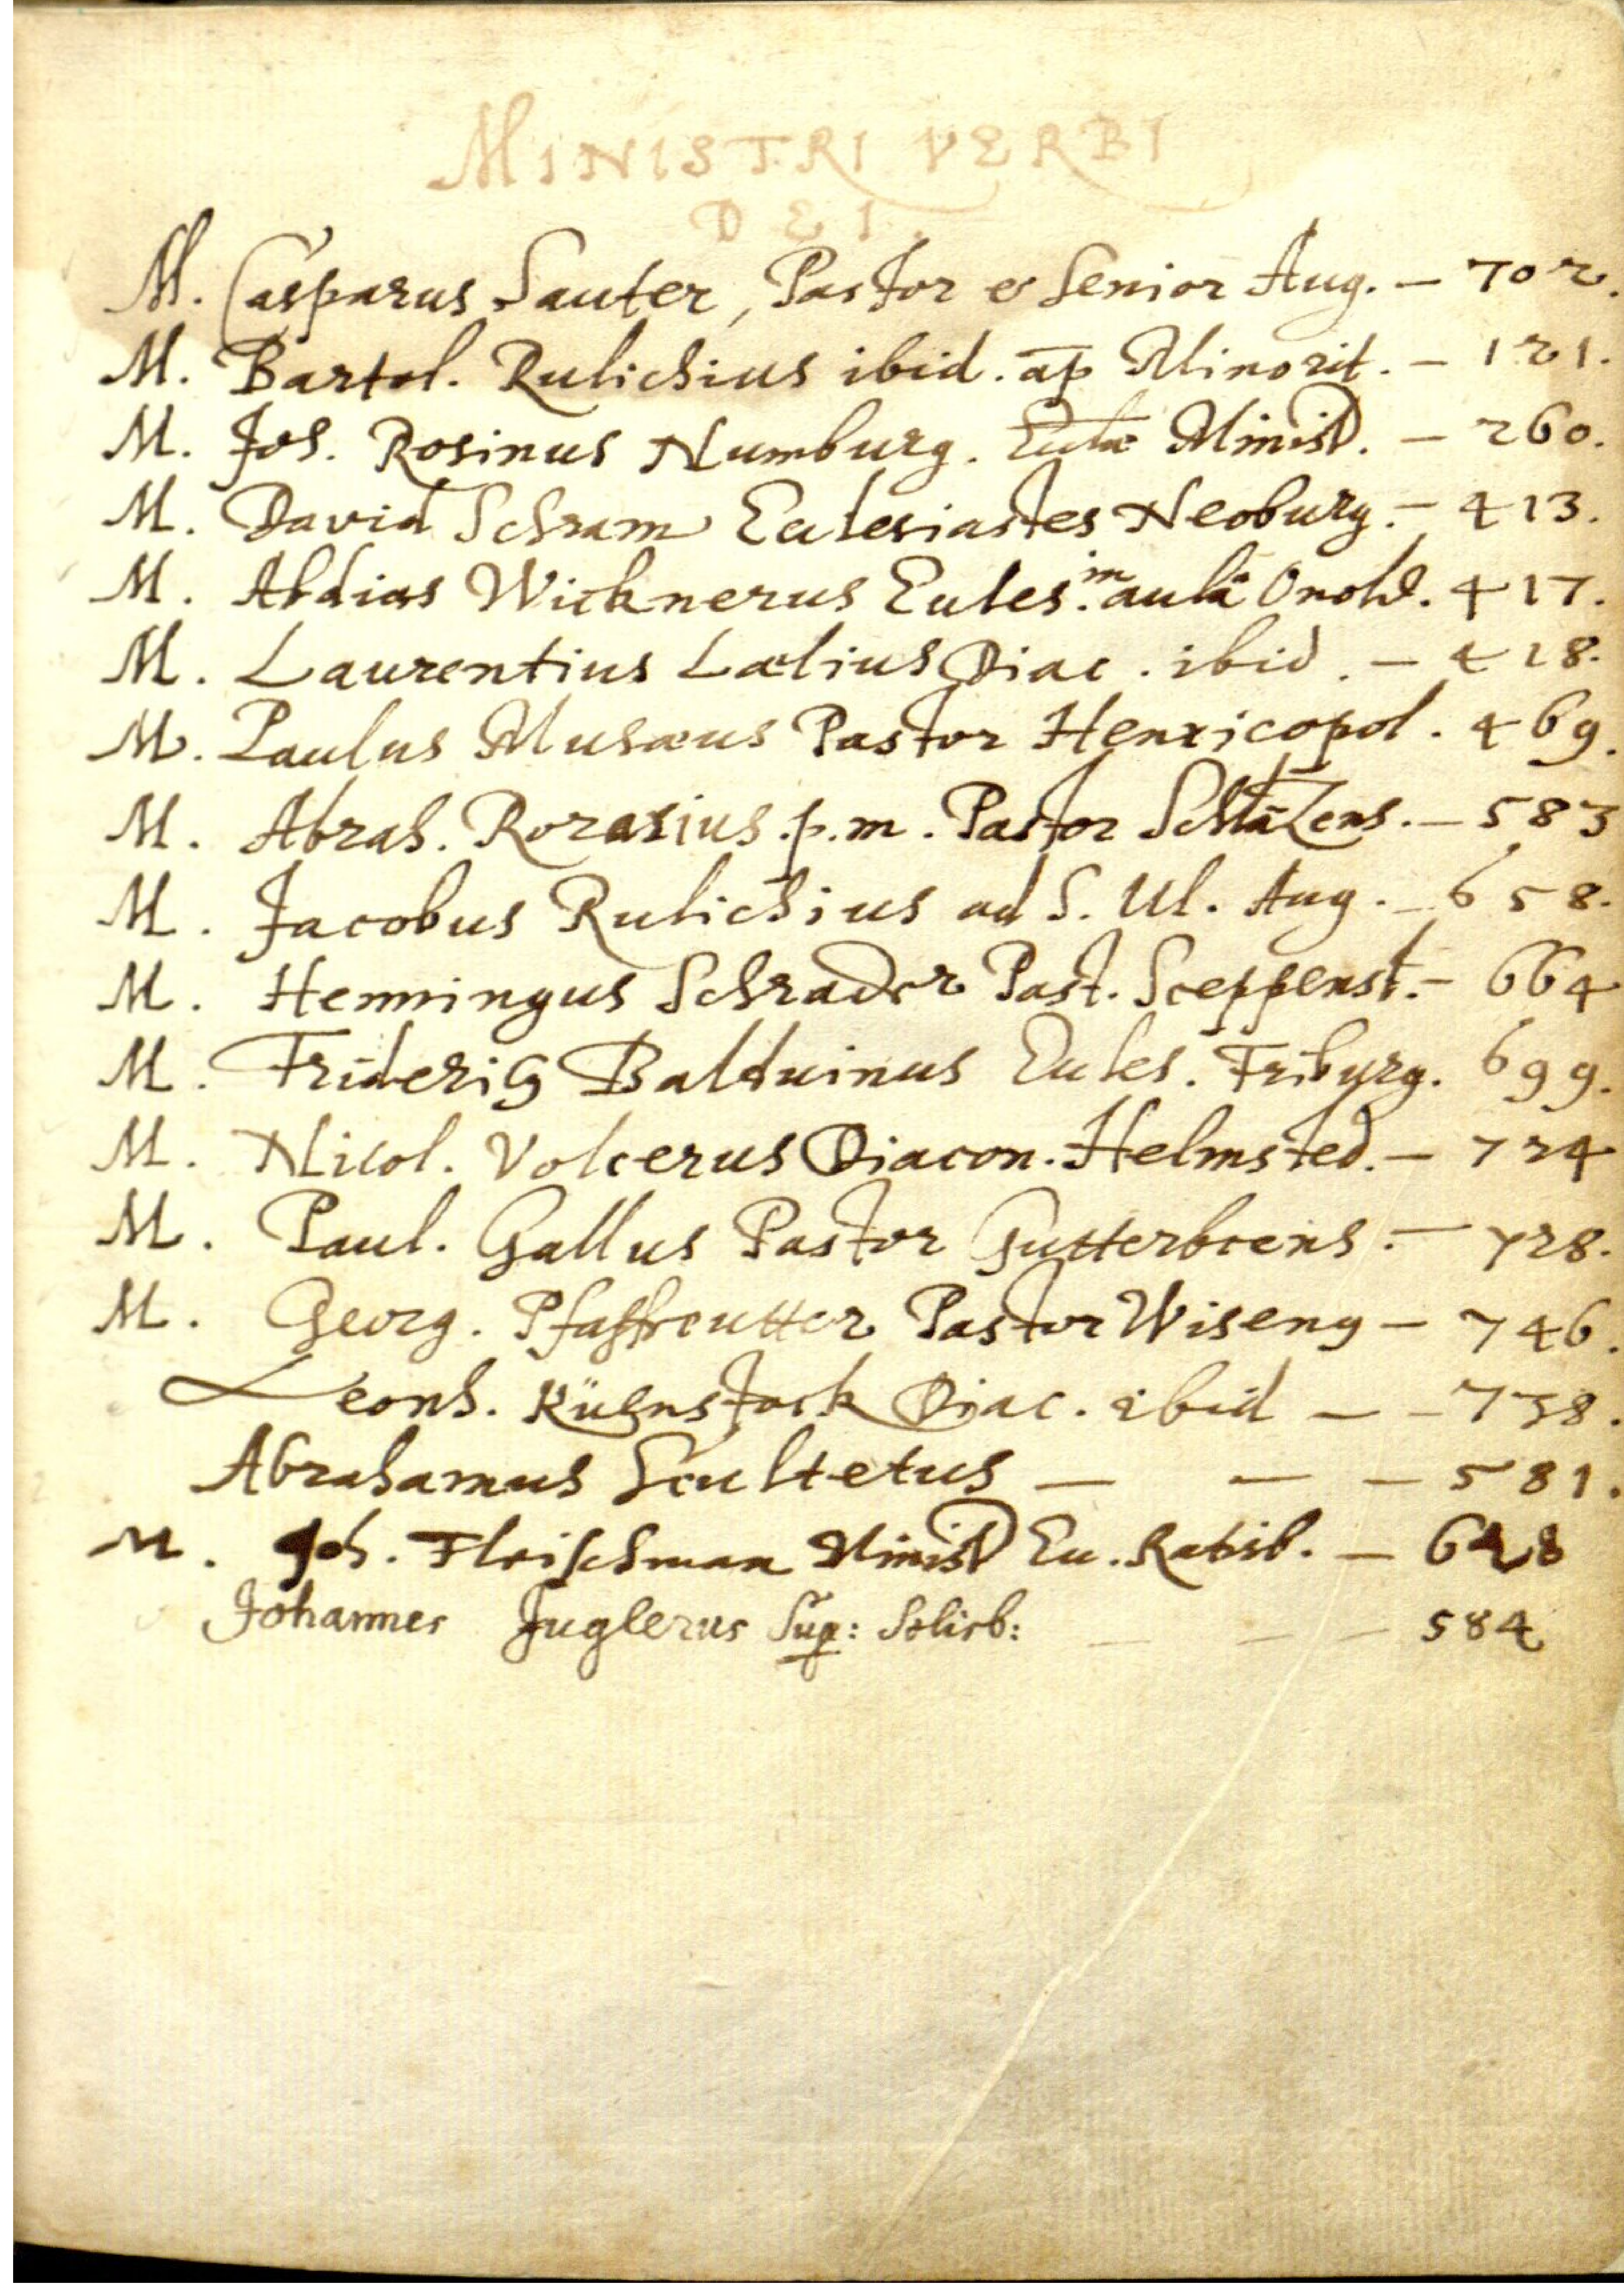 MINISTRI VERBI
DEI.
M. Casparus Sauter, Pastor & Senior Aug. — 702.
M. Bartol. Rulichius ibid. ap Minorit. — 121.
M. Joh. Rosinus Numburg. Eccłæ Minist. — 260.
M. David Schram Ecclesiastes Neoburg. — 413.
M. Abdias Wicknerus Eccles. in aulâ Onold. 417.
M. Laurentius Lælius Diac. ibid. — 418.
M. Paulus Musæus Pastor Henricopol. 469.
M. Abrah. Rorarius p.m. Pastor — 583
M. Jacobus Rulichius ad S. Ul. Aug. — 658.
M. Henningus Schrader Past. Sceppenst. — 664
M. Frideric9 Balduinus Eccles. Friburg. 699.
M. Nicol. Volcerus Diacon. Helmsted. — 724
M. Paul. Gallus Pastor Gutterbocens. — 728.
M. Georg. Pfaffreutter Pastor Wiseng — 746.
Leonh. Küenstock Diac. ibid — — 738.
Abrahamus Scultetus — — — 581.
M. Joh. Fleischman Minist Ec. Ratisb. — 628
Johannes Juglerus Sup: — — — 584